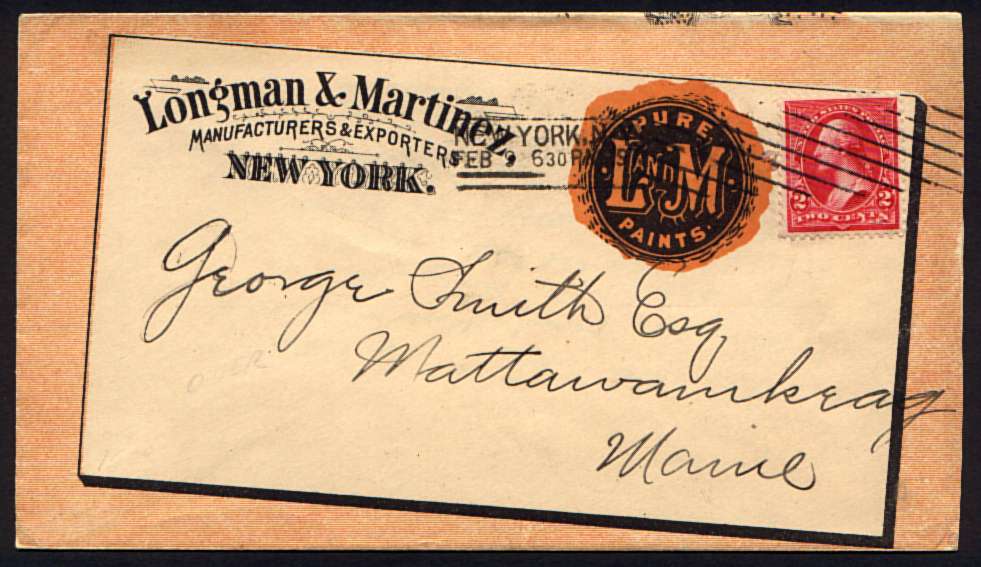 Longman & Martinez,
MANUFACTURERS & EXPORTERS
NEW YORK.
NEW YORK, N.
FEB 6 30 P
PURE
L AND M
PAINTS.
2 2
TWO CENTS
George Smith Esq
Mattawamkeag
Maine
OVER